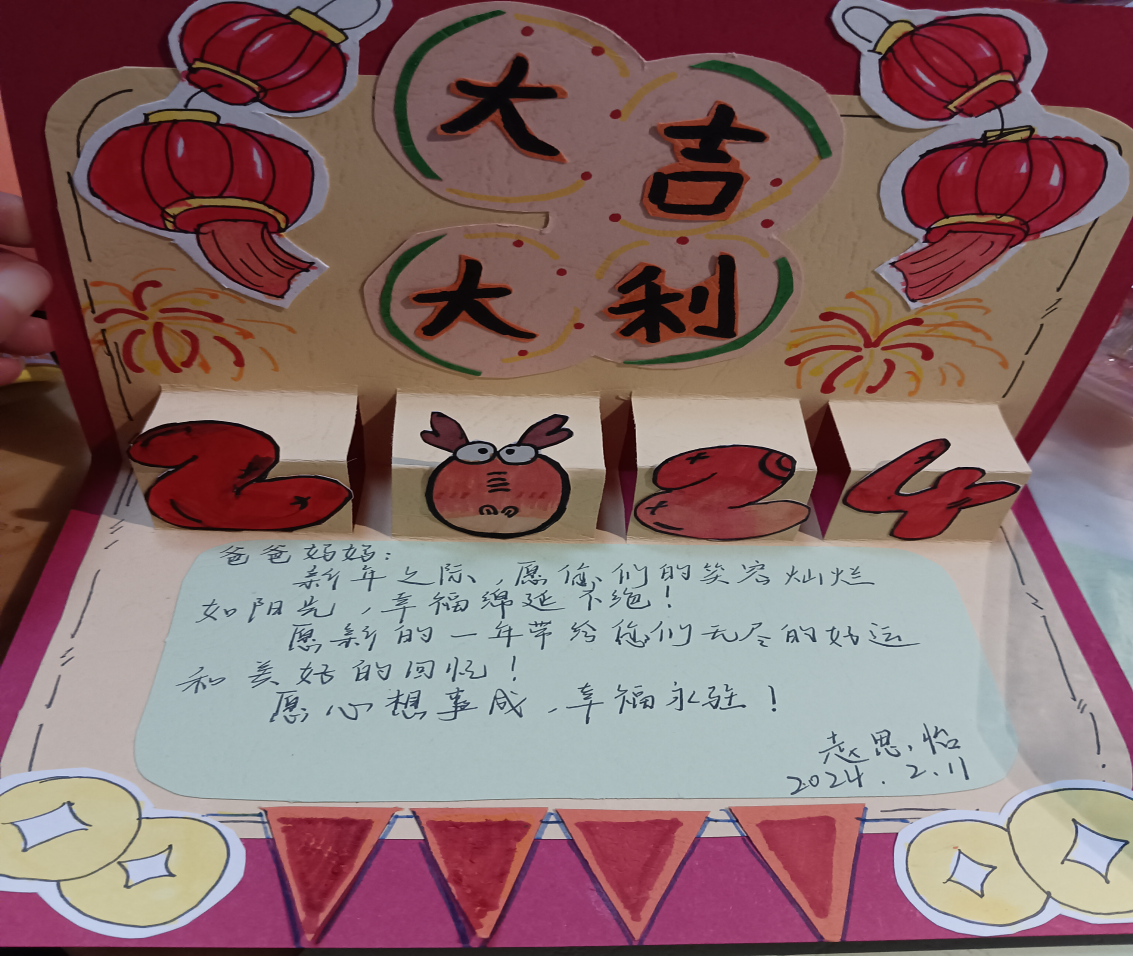 大吉
大利
2 24
爸爸妈妈：
新年之际，愿您们的笑容灿烂
如阳光，幸福绵延不绝！
愿新的一年带给您们无尽的好运
和美好的回忆！
愿心想事成，幸福永驻！
赵思怡
2024.2.11